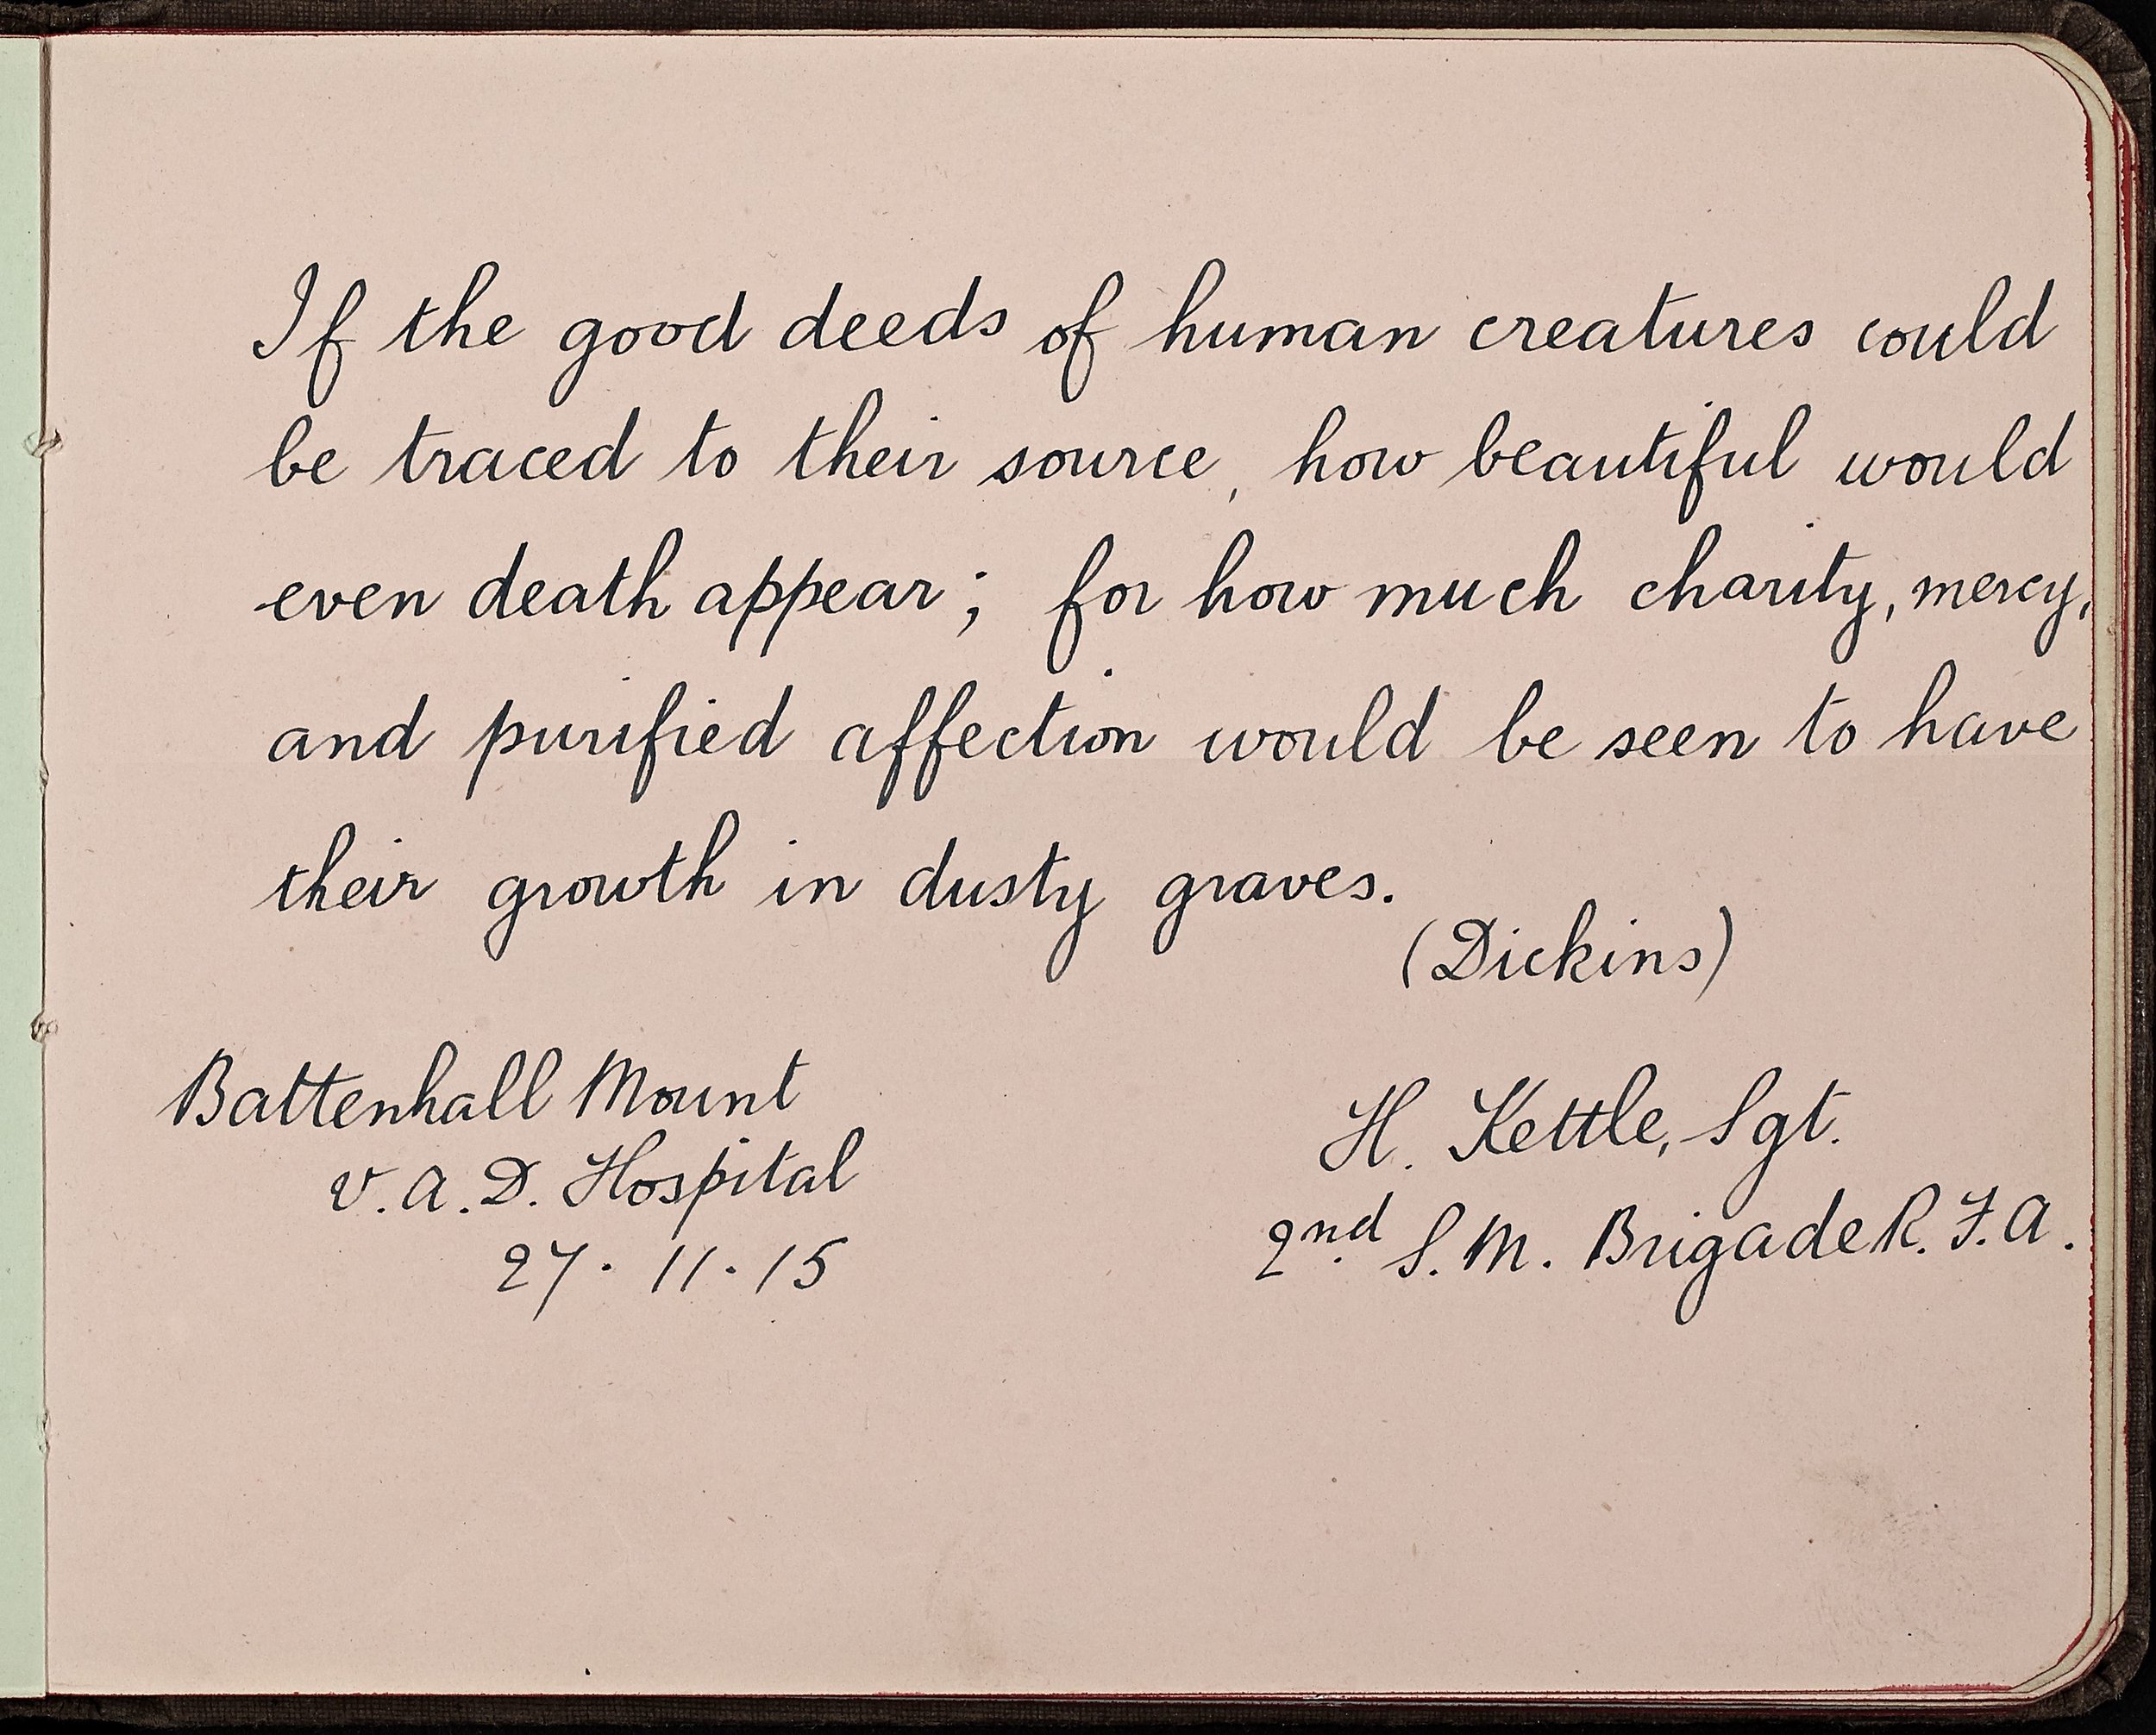 If the good deeds of human creatures could
be traced to their source, how beautiful would
even death appear; for how much charity, mercy,
and purified affection would be seen to have
their growth in dusty graves.
(Dickins)
Battenhall Mount
V.A.D. Hospital
27.11.15
H. Kettle, Sgt.
2nd S.M. Brigade R.F.A.